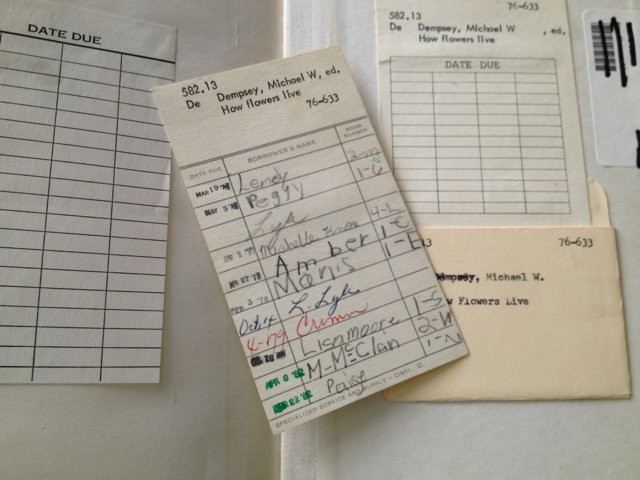 DATE DUE
582.13
De Dempsey, Michael W, ed.
How flowers live
76-633
DATE DUE
BORROWER'S NAME
ROOM NUMBER
MAR 19 78 Lendy
MAY 5 78 Peggy 1-6
Lyle
Michelle 4-L
APR 27 78 Amber 1-E
FEB 3 78 Manis 1-E
Oct. 4 L. Lyle
4-79 Crimm
Lisa moore 1-S
APR 8 82 M-McClan 2-W
APR 22 82 Paige 1-N
SPECIALIZED SERVICE AND SUPPLY - CINTI., O.
582.13 76-633
De Dempsey, Michael W , ed.
How flowers live
DATE DUE
13 76-633
Dempsey, Michael W.
w Flowers Live